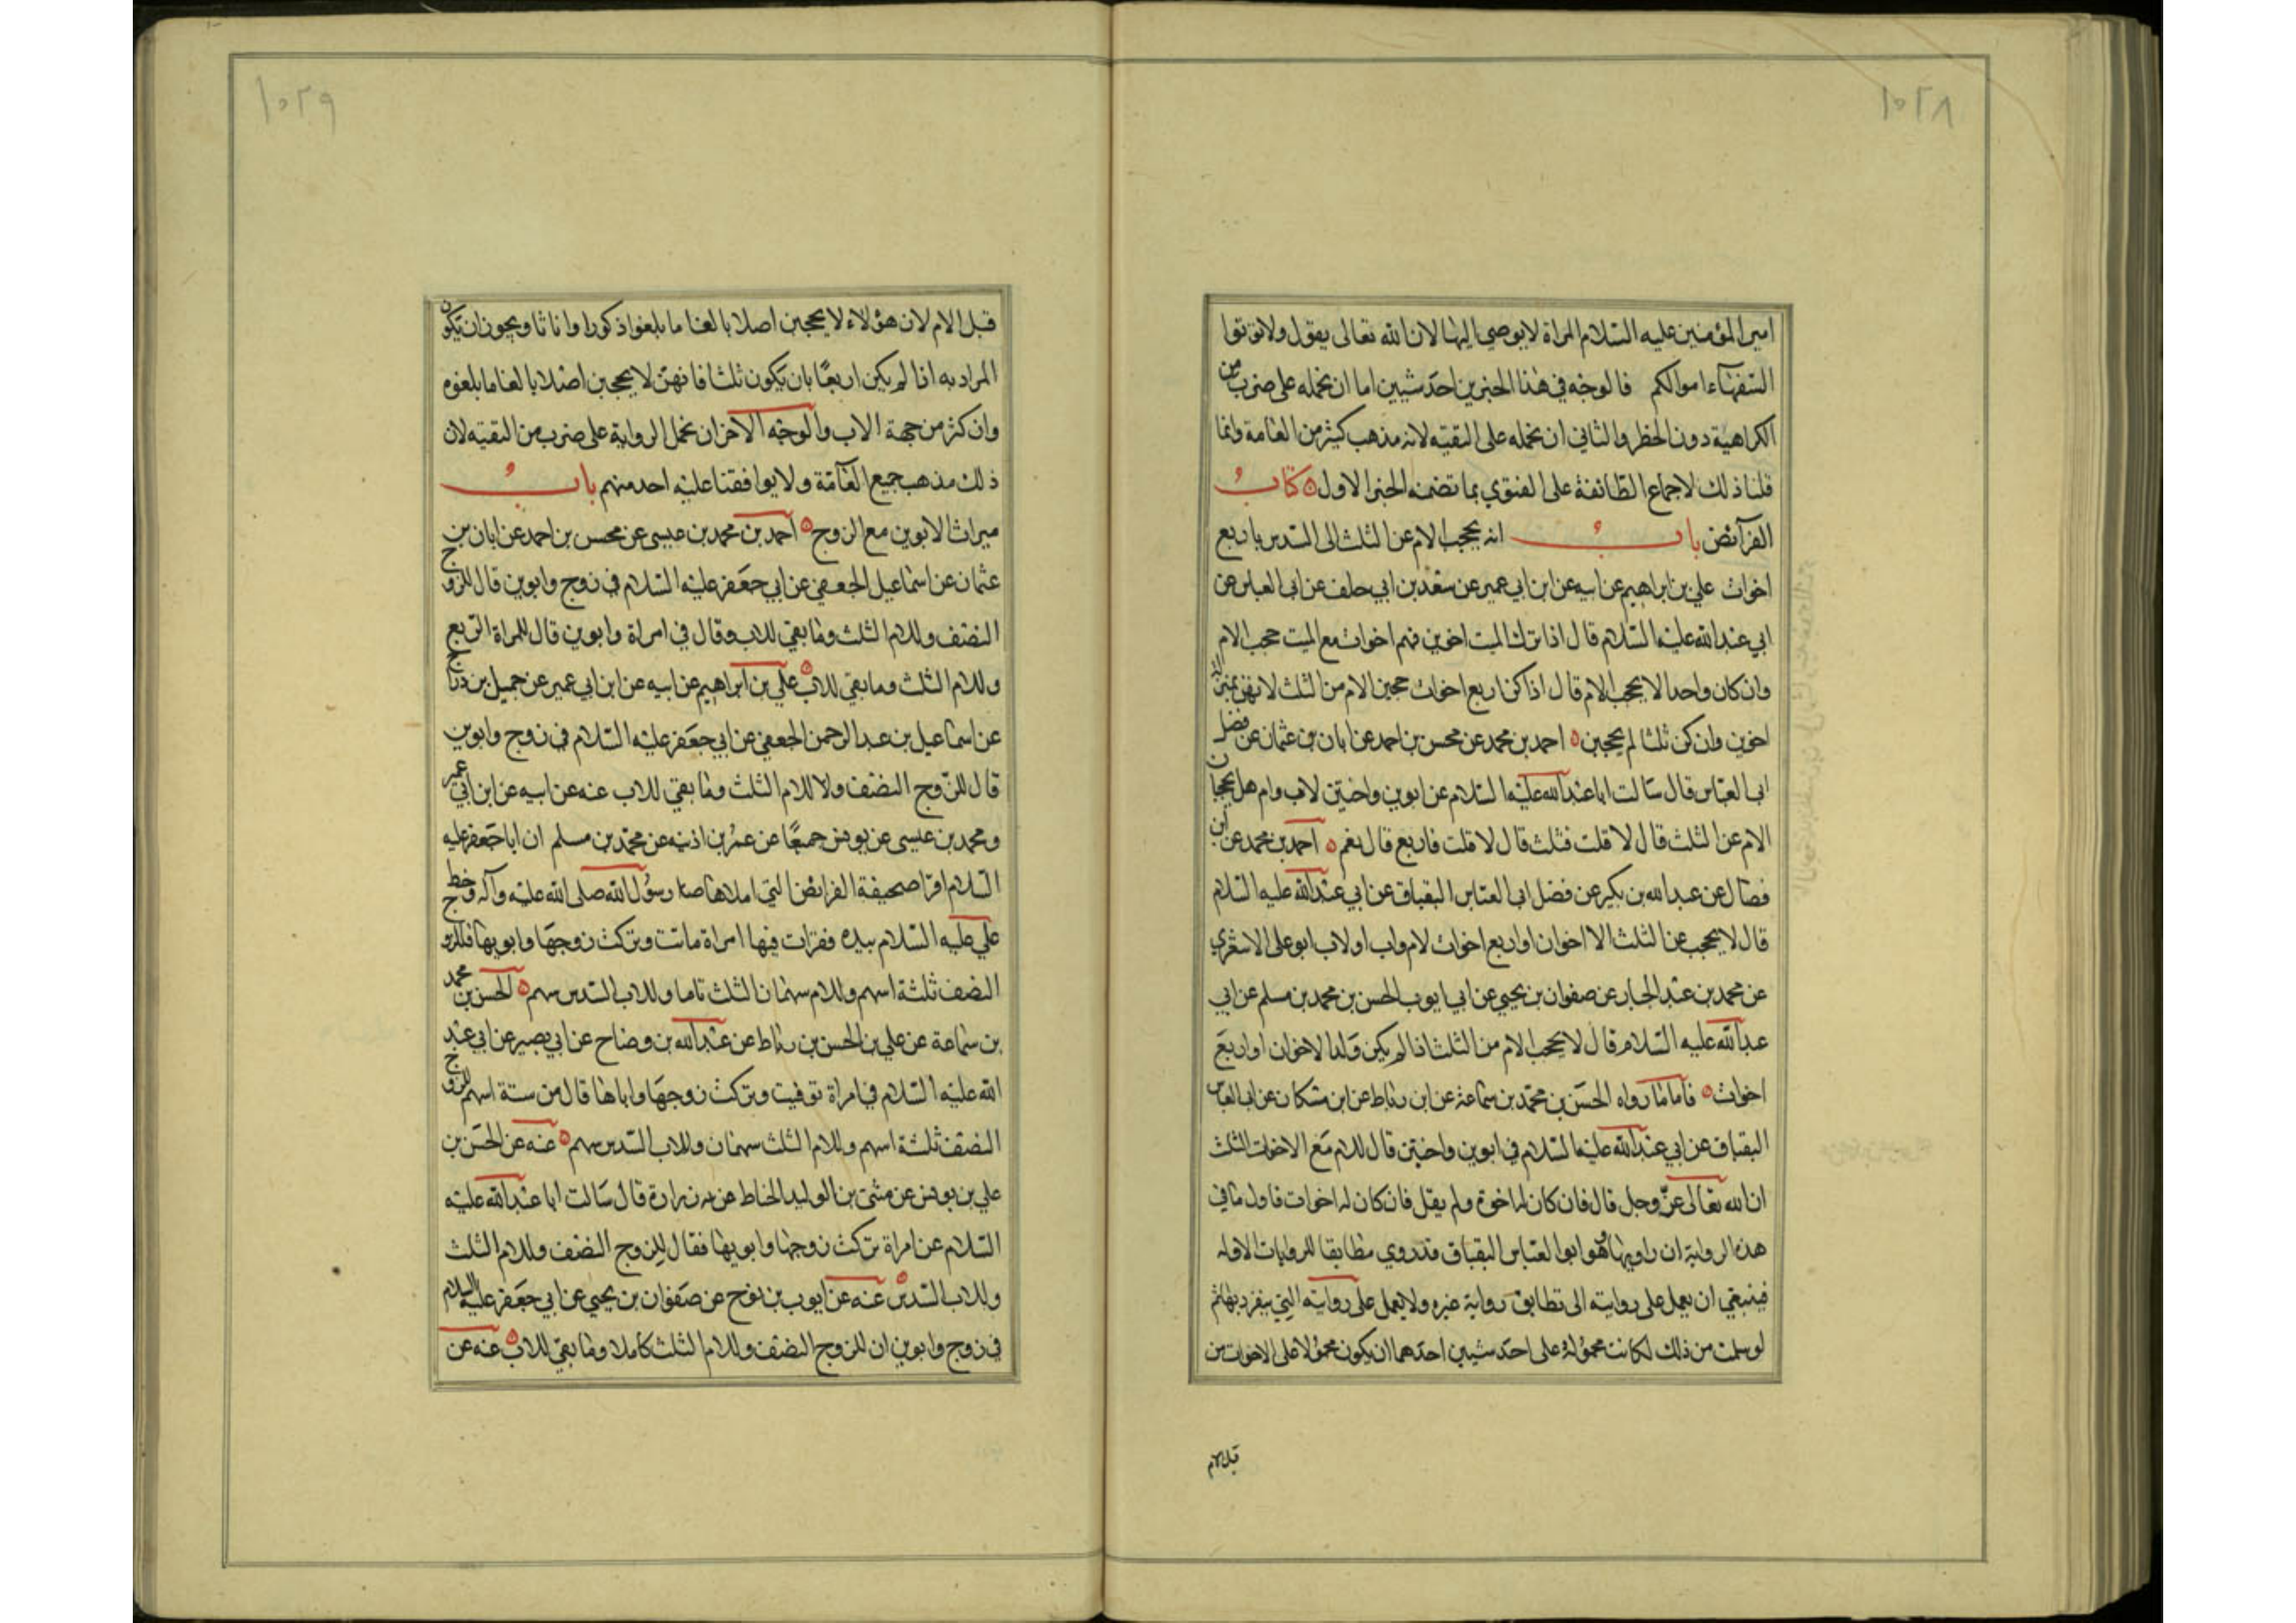 ١٠٢٨
امير المؤمنين عليه السلام المراة لا يوصى اليها لان الله تعالى يقول ولا تؤتوا
السفهاء اموالكم فالوجه في هذا الخبرين احد شيئين اما ان نحمله على ضرب من
الكراهية دون الحظر والثاني ان نحمله على التقيه لانه مذهب كثير من العامة وانما
قلنا ذلك لاجماع الطائفة على الفتوي بما تضمنه الخبر الاول كتاب
الفرائض باب انه يحجب الام عن الثلث الى السدس باربع
اخوات علي بن ابراهيم عن ابيه عن ابن ابي عمير عن سعد بن ابي خلف عن ابى العباس عن
ابي عبد الله عليه السلام قال اذا ترك الميت اخوين فهم اخوات مع الميت حجب الام
وان كان واحدا لا يحجب الام قال اذا كن اربع اخوات حجبن الام من الثلث لانهن بمنزلة
اخوين وان كن ثلثا لم يحجبن احمد بن محمد عن محسن بن احمد عن ابان بن عثمان عن فضل
ابى العباس قال سالت ابا عبد الله عليه السلام عن ابوين واختين لاب وام هل يحجبان
الام عن الثلث قال لا قلت فثلث قال لا قلت فاربع قال نعم احمد بن محمد عن ابن
فضال عن عبد الله بن بكير عن فضل ابى العباس البقباق عن ابي عبد الله عليه السلام
قال لا يحجب عن الثلث الا اخوان او اربع اخوات لام واب او لاب ابو على الاشعري
عن محمد بن عبد الجبار عن صفوان بن يحيي عن ابي ايوب الحسن بن محمد بن مسلم عن ابي
عبد الله عليه السلام قال لا يحجب الام من الثلث اذا لم يكن ولد الا اخوان او اربع
اخوات فاما ما رواه الحسن بن محمد بن سماعة عن ابن رباط عن ابن مسكان عن ابى العباس
البقباق عن ابي عبد الله عليه السلام في ابوين واختين قال للام مع الاخوات الثلث
ان الله تعالى عز وجل قال فان كان له اخوة ولم يقل فان كان له اخوات فاول ما في
هذه الرواية ان راويها هو ابو العباس البقباق قد روي مطابقا للروايات الاوله
فينبغي ان يعمل على روايته الى تطابق رواية غيره ولا يعمل على روايته التي ينفرد بها ثم
لو سلمت من ذلك لكانت محمولة على احد شيئين احدهما ان يكون محمولا على الاخوات من
قبل الام
١٠٢٩
قبل الام لان هؤلاء لا يحجبن اصلا بالغا ما بلغوا ذكورا واناثا ويجوز ان تكون
المراد به اذا لم يكن اربعًا بان يكون ثلثا فانهن لا يحجبن اصلا بالغا ما بلغوم
وان كثر من جهة الاب والوجه الاخر ان نحمل الرواية على ضرب من التقيه لان
ذلك مذهب جميع العامة ولا يوافقنا عليه احد منهم باب
ميراث الابوين مع الزوج احمد بن محمد بن عيسى عن محسن بن احمد عن ابان بن
عثمان عن اسماعيل الجعفي عن ابي جعفر عليه السلام في زوج وابوين قال للزوج
النصف وللام الثلث وما بقي للاب وقال في امراة وابوين قال للمراة الربع
وللام الثلث وما بقي للاب علي بن ابراهيم عن ابيه عن ابن ابي عمير عن جميل بن دراج
عن اسماعيل بن عبد الرحمن الجعفي عن ابي جعفر عليه السلام في زوج وابوين
قال للزوج النصف ولا للام الثلث وما بقي للاب عنه عن ابيه عن ابن ابي عمير
ومحمد بن عيسى عن يونس جميعًا عن عمر بن اذينه عن محمد بن مسلم ان ابا جعفر عليه
السلام اقرا صحيفة الفرائض التي املاها رسول الله صلى الله عليه وآله وخط
علي عليه السلام بيده فقرات فيها امراة ماتت وتركت زوجها وابويها فللزوج
النصف ثلثة اسهم وللام سهمان الثلث تاما وللاب السدس سهم الحسن بن محمد
بن سماعة عن علي بن الحسن بن رباط عن عبد الله بن وضاح عن ابي بصير عن ابي عبد
الله عليه السلام في امراة توفيت وتركت زوجها واباها قال من ستة اسهم للزوج
النصف ثلثة اسهم وللام الثلث سهمان وللاب السدس سهم عنه عن الحسن بن
علي بن يونس عن مثنى بن الوليد الخاط عن زرارة قال سالت ابا عبد الله عليه
السلام عن امراة تركت زوجها وابويها فقال للزوج النصف وللام الثلث
وللاب السدس عنه عن ايوب بن نوح عن صفوان بن يحيي عن ابي جعفر عليه السلام
في زوج وابوين ان للزوج النصف وللام الثلث كاملا وما بقي للاب عنه عن